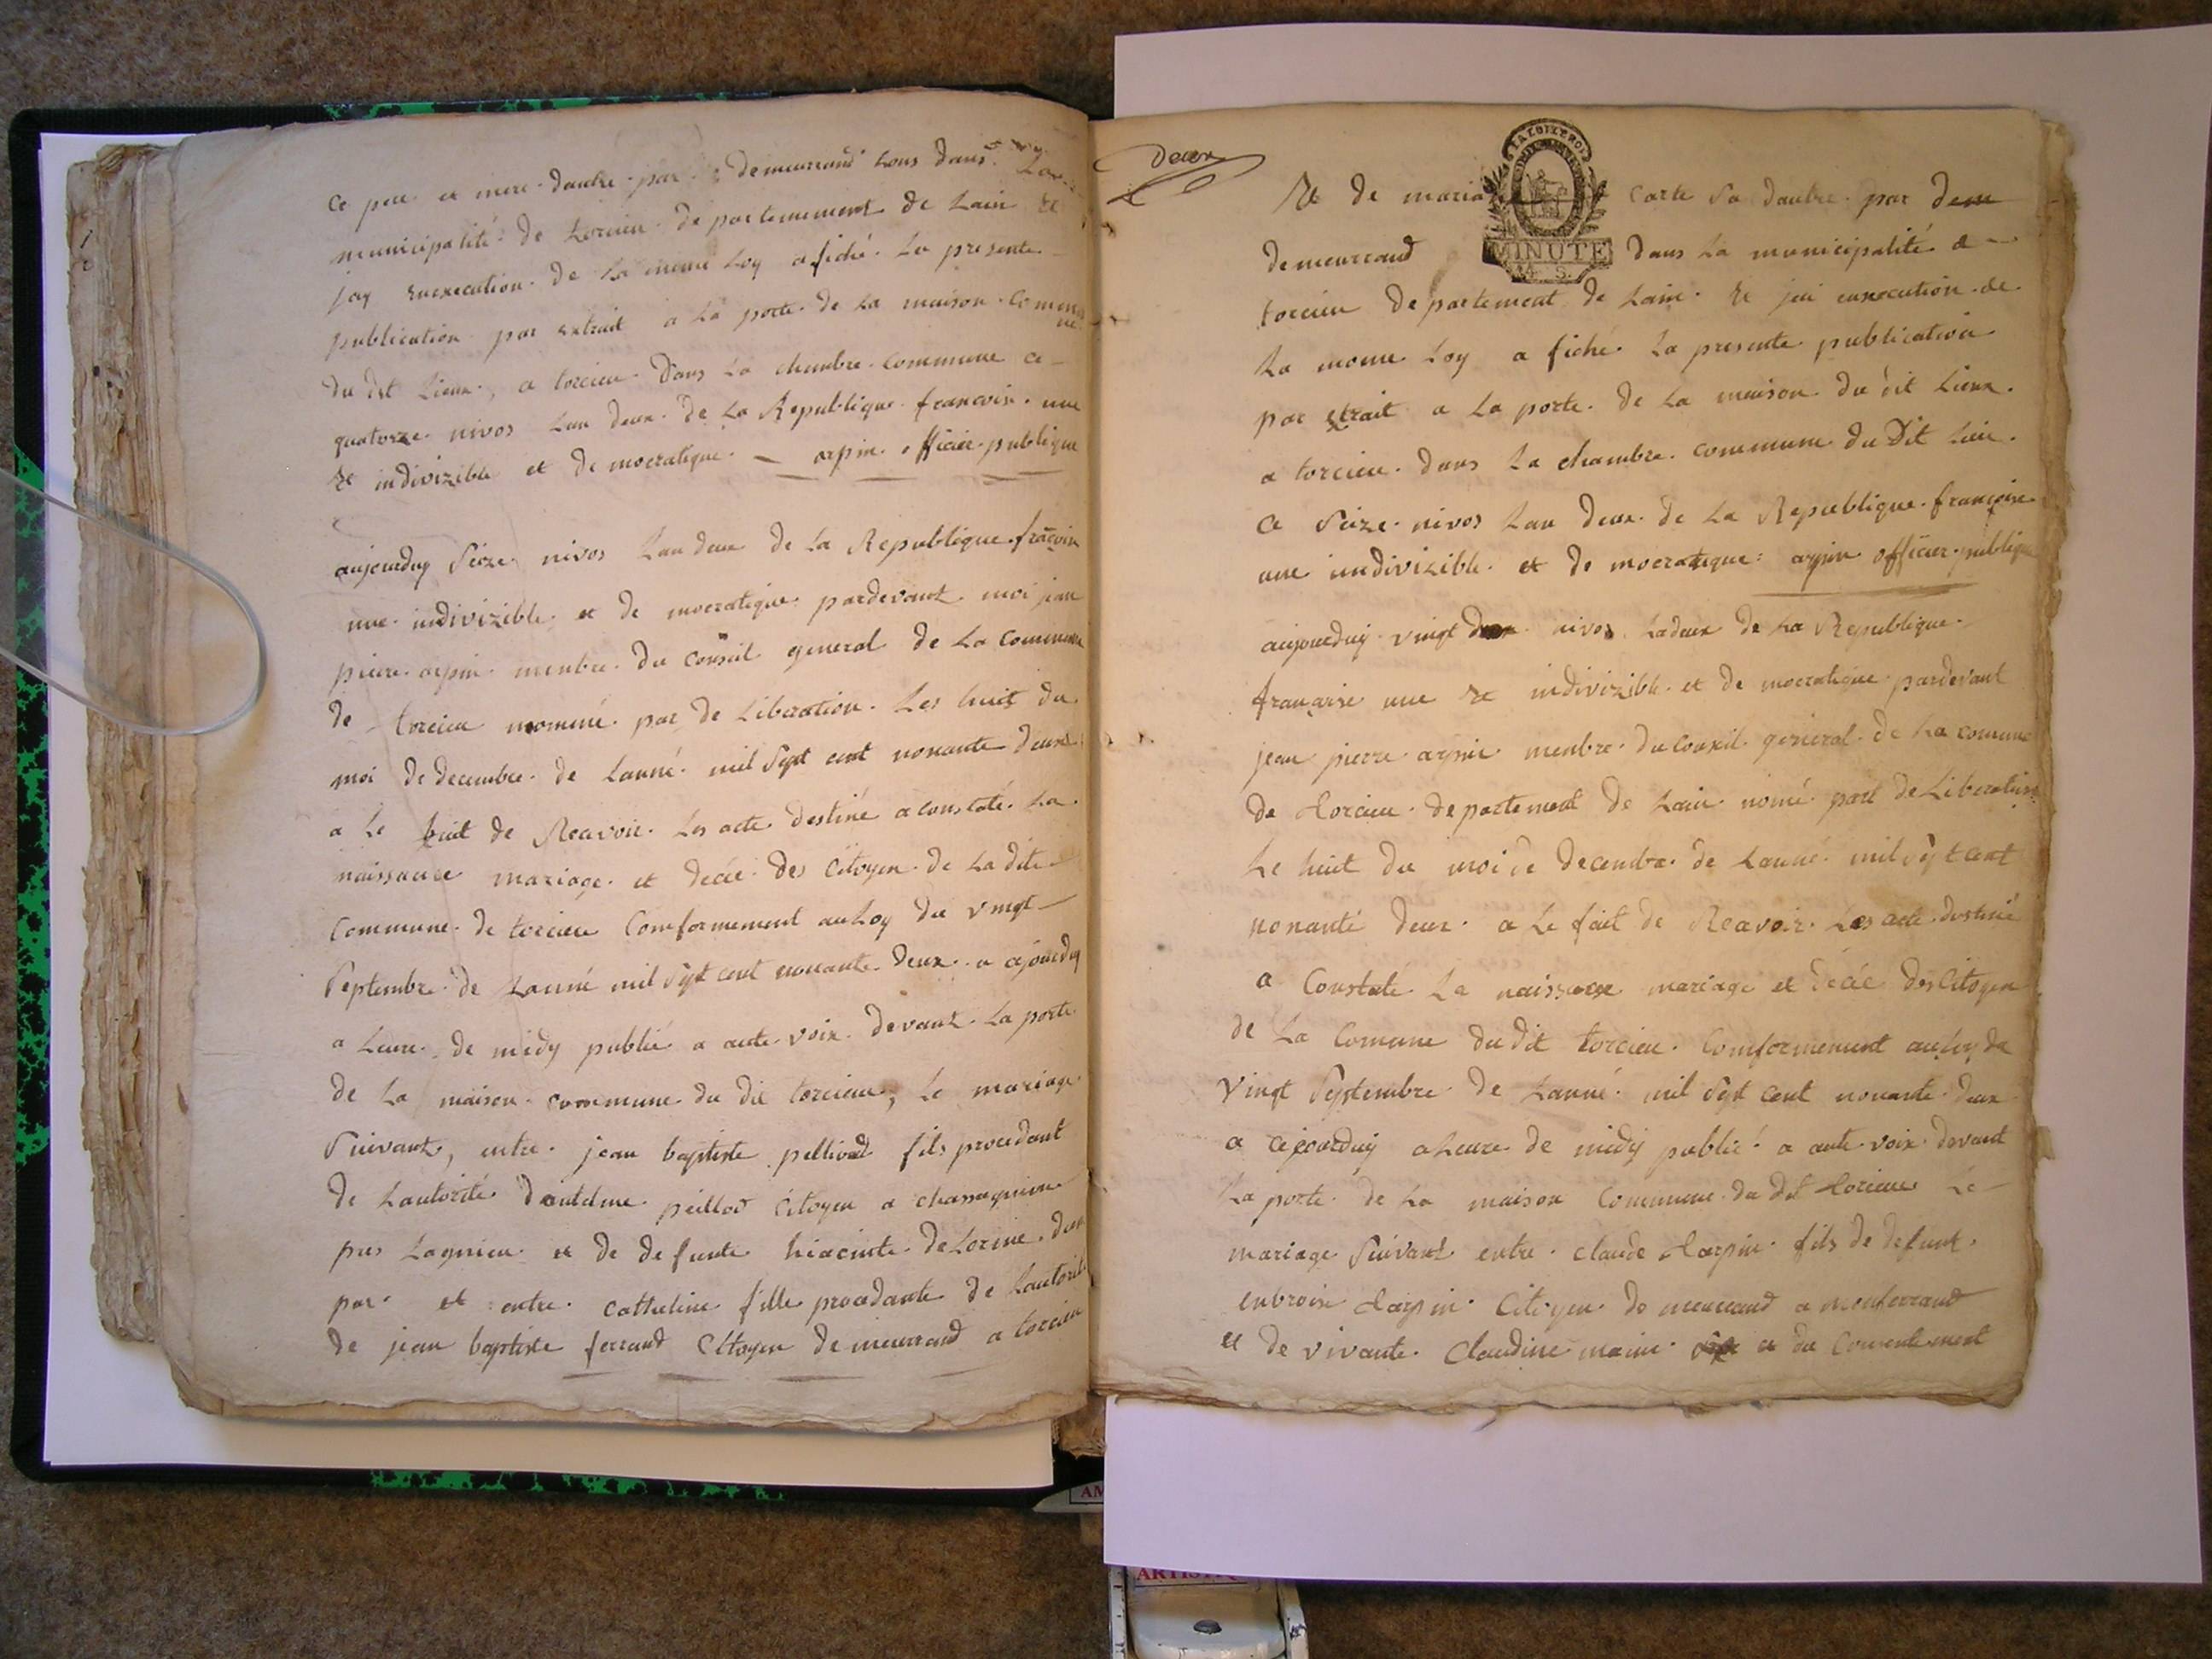 ce pere et mere dautre par demeurrand tous dans La
municipalité de torcieu departemement de Lain et
jay enexecution de La meme Loy afiché La presente
publication par extrait a La porte de La maison commu
ne
du dit Lieux, a torcieu dans La chambre commune ce
quatorze nivos Lan deux de La Republique francoise une
et indivizible et democratique arpin officier publique
aujourduy Seize nivos Landeux de La Republique francoise
une indivizible et democratique pardevant moi jean
pierre arpin menbre du Conseil general de La Commune
de torcieu nommé par deliberation Les huit du
moi de decembre de Lanné mil Sept cent nonante deux
a Le fait de Recevoir Les acte destiné a constaté La
naissance mariage et décée des Citoyen de La dite
Commune de torcieu Comformement au Loy du vingt
Septembre de Lanné mil Sept cent nonante deux a cejourduy
a Leure de midy publié a aute voix devant La porte
de La maison commune du dit torcieu, Le mariage
Suivant, entre jean baptiste pelliod fils procedant
de Lautorité dantelme peillod Citoyen a chassagnion
pres Lagnieu et de defunte hiacinte deLorme dun
par et entre catheline fille procedante de Lautorité
de jean baptiste ferrand Citoyen demeurrand a torcieu
Deux
Et de maria carte Sa dautre par dem
demeurrand dans La municipalité de
torcieu departement de Lain Et jai enexecution de
La meme Loy afiché La presente publication
par etrait a La porte de La maison du dit Lieux
a torcieu dans La chambre commune du Dit Lieu
ce Seize nivos Lan deux de La Republique françoise
une indivizible et democratique arpin officier publique
STAT OU LE ROI
MINUTE
4 S.
aujourduy vingt deux nivos Ladeux de La Republique
françoise une et indivizible et democratique pardevant
jean pierre arpin menbre du Conseil general de La comune
de torcieu departement de Lain nomé part deLiberation
Le huit du moi de decembre de Lanné mil Sept cent
nonanté deux a Le fait de Recevoir Les acte destiné
a Constaté La naissance mariage et décée des Citoyen
de La Comune du dit torcieu Comformement au Loy du
vingt Septembre de Lanné mil Sept cent nonante deux
a cejourduy a Leure de midy publié a aute voix devant
La porte de La maison Commune du dit torcieu Le
mariage Suivant entre claude harpin fils de defunt
enbroise harpin Citoyen demeurrand a monferrand
et de vivante Claudine et du Consentement